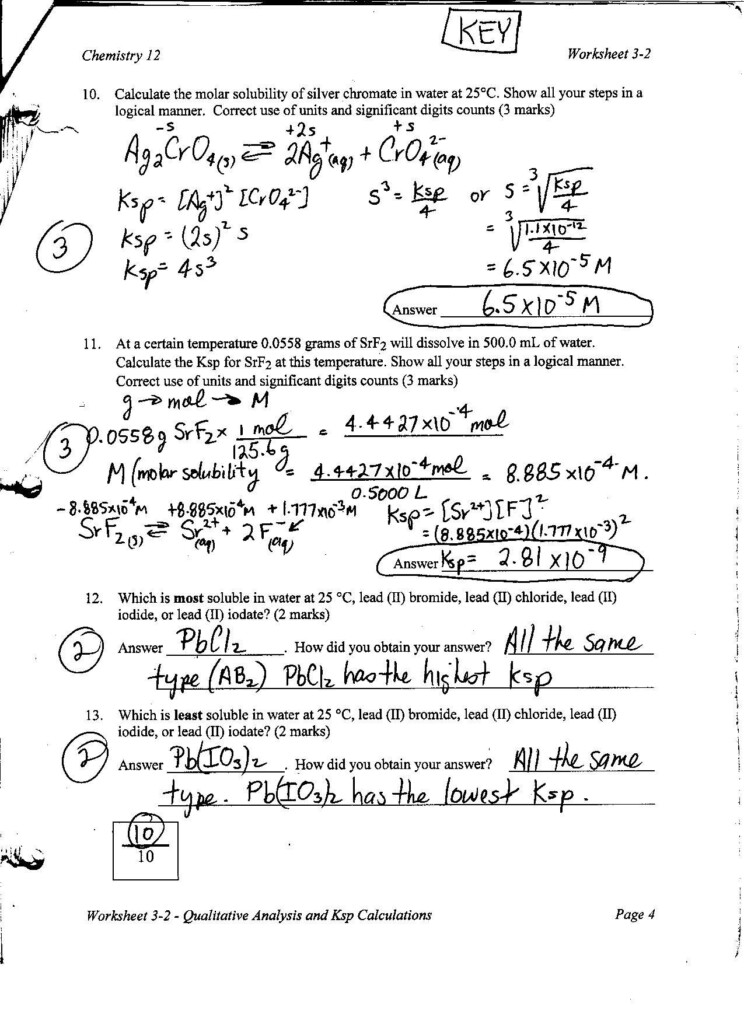 KEY
Chemistry 12 Worksheet 3-2
10. Calculate the molar solubility of silver chromate in water at 25°C. Show all your steps in a
logical manner. Correct use of units and significant digits counts (3 marks)
-s +2s +s
Ag₂CrO₄(s) ⇌ 2Ag⁺(aq) + CrO₄²⁻(aq)
Ksp = [Ag⁺]² [CrO₄²⁻] S³ = Ksp/4 or S = ³√(Ksp/4)
3 Ksp = (2s)² s = ³√(1.1x10⁻¹²/4)
Ksp = 4s³ = 6.5x10⁻⁵ M
Answer 6.5x10⁻⁵ M
11. At a certain temperature 0.0558 grams of SrF₂ will dissolve in 500.0 mL of water.
Calculate the Ksp for SrF₂ at this temperature. Show all your steps in a logical manner.
Correct use of units and significant digits counts (3 marks)
g → mol → M
3 0.0558g SrF₂ x 1 mol/125.6g = 4.4427x10⁻⁴ mol
M (molar solubility = 4.4427x10⁻⁴ mol/0.5000 L = 8.885x10⁻⁴ M.
-8.885x10⁻⁴M +8.885x10⁻⁴M + 1.777x10⁻³M Ksp = [Sr²⁺][F⁻]²
SrF₂(s) ⇌ Sr²⁺(aq) + 2F⁻(aq) = (8.885x10-4)(1.777x10⁻³)²
Answer Ksp = 2.81 x10⁻⁹
12. Which is most soluble in water at 25 °C, lead (II) bromide, lead (II) chloride, lead (II)
iodide, or lead (II) iodate? (2 marks)
2 Answer PbCl₂. How did you obtain your answer? All the same
type (AB₂) PbCl₂ has the highest Ksp
13. Which is least soluble in water at 25 °C, lead (II) bromide, lead (II) chloride, lead (II)
iodide, or lead (II) iodate? (2 marks)
2 Answer Pb(IO₃)₂. How did you obtain your answer? All the same
type. Pb(IO₃)₂ has the lowest Ksp.
10
10
Worksheet 3-2 - Qualitative Analysis and Ksp Calculations Page 4